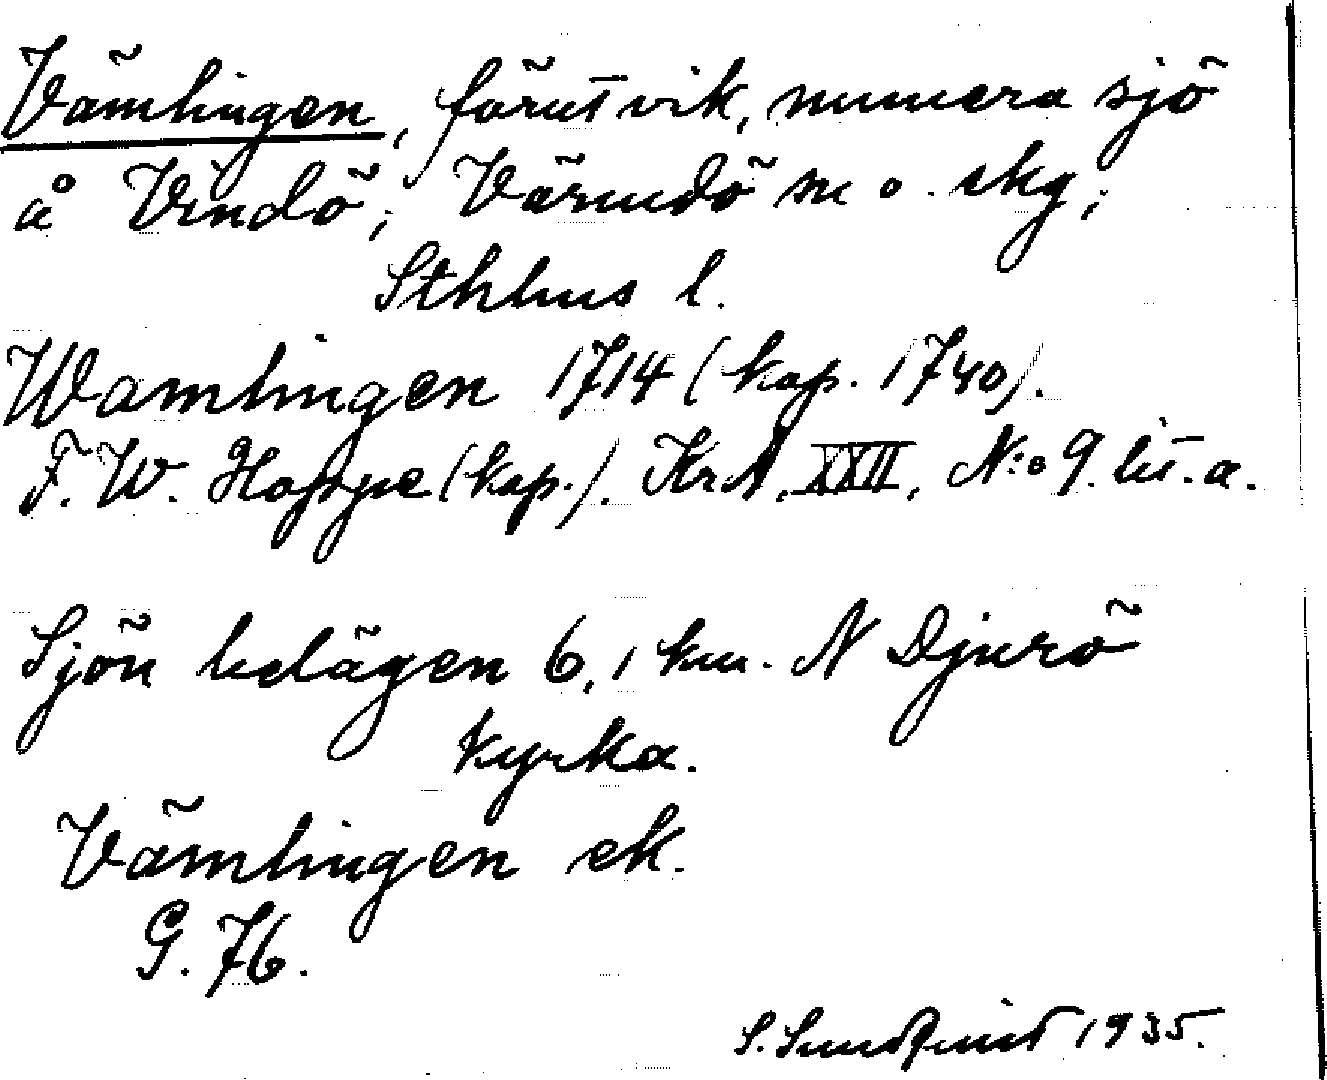 Vämlingen, förut vik, numera sjö
å Vindö, Värmdö sn o. skg,
Sthlms l.
Wamlingen 1714 (kop. 1740).
F. W. Hoppe (kop.). KrA, XXII, N:o 9. lit. a.
Sjön belägen 6,1 km. N Djurö
kyrka.
Vämlingen ek.
G. 76.
S. Sundquist 1935.